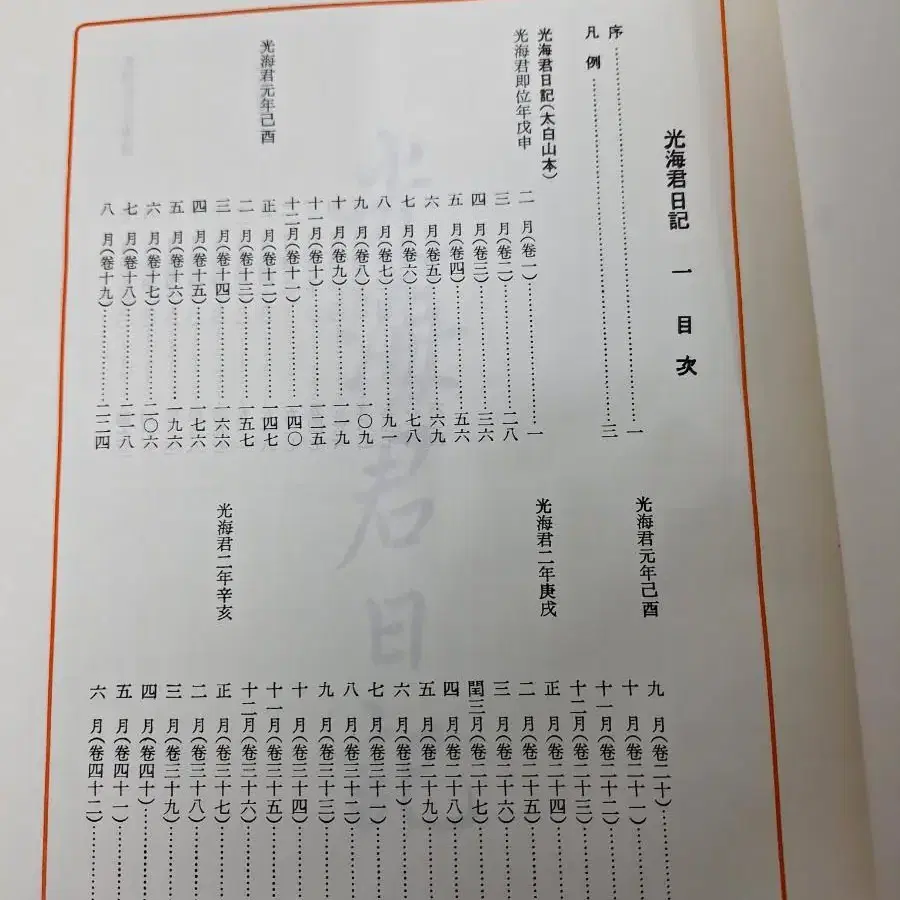 光海君日記 一 目次
序……一
凡例……三
光海君日記(太白山本)
光海君即位年戊申
二月(卷一)……一
三月(卷二)……二八
四月(卷三)……三六
五月(卷四)……五六
六月(卷五)……六九
七月(卷六)……七八
八月(卷七)……九一
九月(卷八)……一〇九
十月(卷九)……一一九
十一月(卷十)……一二五
十二月(卷十一)……一四〇
光海君元年己酉
正月(卷十二)……一四七
二月(卷十三)……一五七
三月(卷十四)……一六六
四月(卷十五)……一七六
五月(卷十六)……一九六
六月(卷十七)……二〇六
七月(卷十八)……二一八
八月(卷十九)……二二四
光海君元年己酉
九月(卷二十)……
十月(卷二十一)……
十一月(卷二十二)……
十二月(卷二十三)……
光海君二年庚戌
正月(卷二十四)……
二月(卷二十五)……
三月(卷二十六)……
閏三月(卷二十七)……
四月(卷二十八)……
五月(卷二十九)……
六月(卷三十)……
七月(卷三十一)……
八月(卷三十二)……
九月(卷三十三)……
十月(卷三十四)……
十一月(卷三十五)……
十二月(卷三十六)……
光海君二年辛亥
正月(卷三十七)……
二月(卷三十八)……
三月(卷三十九)……
四月(卷四十)……
五月(卷四十一)……
六月(卷四十二)……